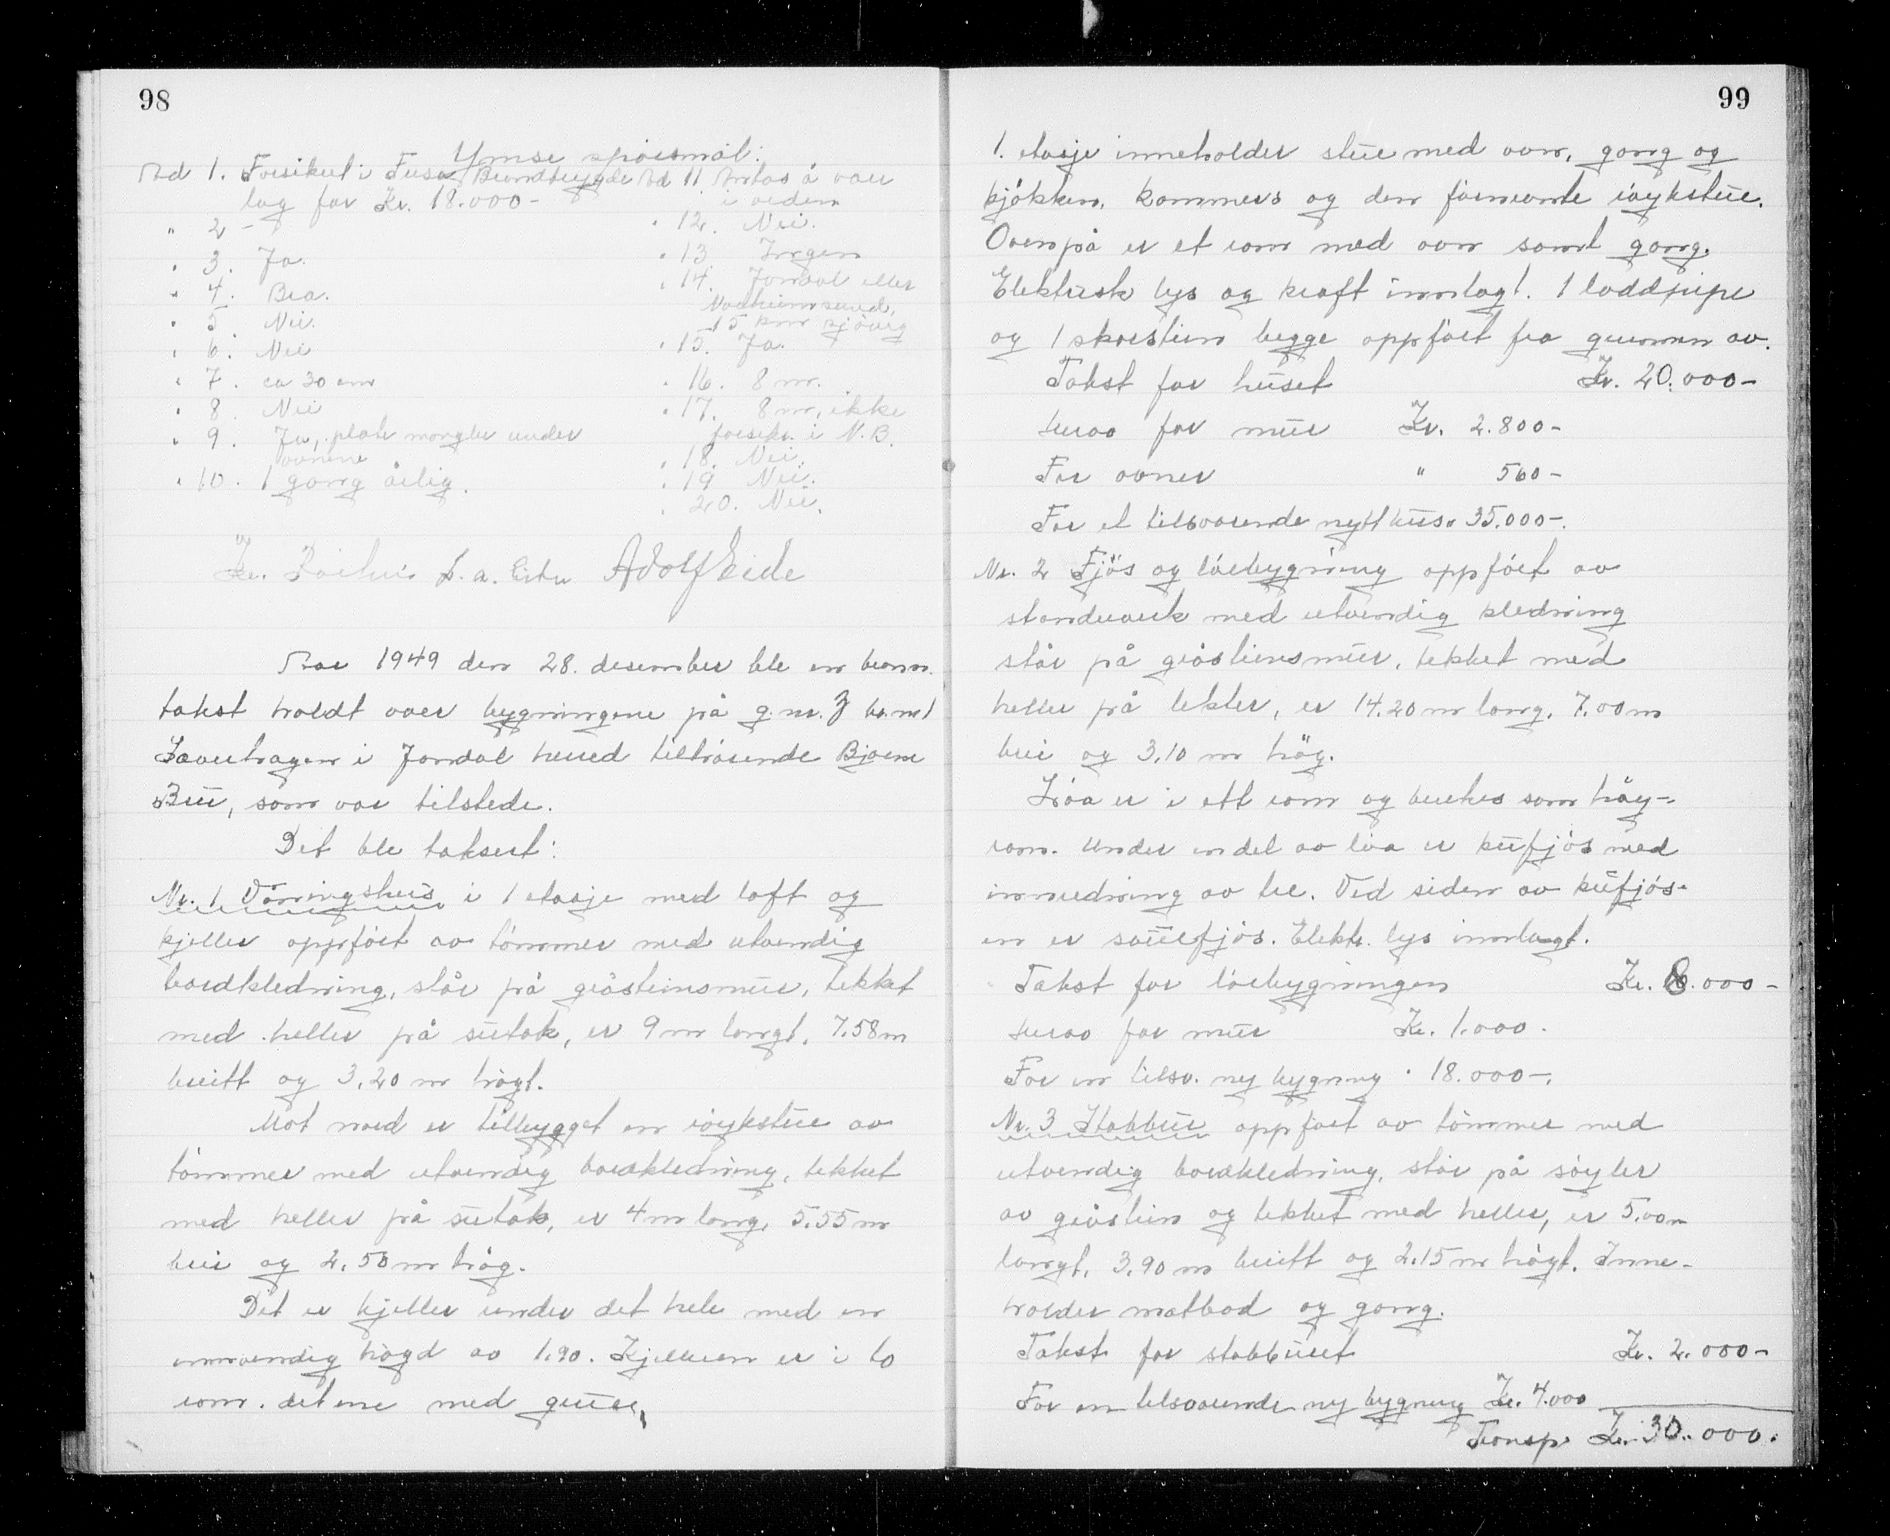 98
Ymse spørsmål:
Ad 1. Forsikret i Fusa Brandtrygde
lag for Kr. 18.000-
" 2 -
" 3. Ja.
" 4. Bra.
" 5. Nei.
" 6. Nei
" 7. ca 30 cm
" 8. Nei
" 9. Ja, plate mangler under
ovnene
" 10. 1 gang årlig.
Ad 11. Antas å være
i orden
" 12. Nei.
" 13 Ingen
" 14. Jondal eller
Norheimsund,
15 km sjøveg
" 15. Ja.
" 16. 8 m.
" 17. 8 m, ikke
forsikr. i N.B.
" 18. Nei.
" 19 Nei.
" 20. Nei.
Adolf Eide
Aar 1949 den 28. desember ble en brann-
takst holdt over bygningene på g.nr. 3 br.nr 1
i Jondal herred tilhørende Bjarne
Bru, som var tilstede.
Det ble taksert:
Nr. 1 Våningshus i 1 etasje med loft og
kjeller oppført av tømmer med utvendig
bordkledning, står på gråsteinsmur, tekket
med heller på sutak, er 9 m langt, 7.58 m
breitt og 3.20 m høgt.
Mot nord er tilbygget en røykstue av
tømmer med utvendig bordkledning, tekket
med heller på sutak, er 4 m lang, 5.55 m
brei og 2.50 m høg.
Det er kjeller under det hele med en
innvendig høgd av 1.90. Kjelleren er i to
rom. det ene med grue,
99
1. etasje inneholder stue med ovn, gang og
kjøkken, kammers og den førnevnte røykstue.
Ovenpå er et rom med ovn samt gang.
Elektrisk lys og kraft innlagt. 1 loddpipe
og 1 skorstein begge oppført fra grunnen av.
Takst for huset Kr. 20.000-
Herav for mur Kr. 2.800-
For ovner " 560-
For et tilsvarende nytt hus " 35.000-.
Nr. 2 Fjøs og løebygning oppført av
standverk med utvendig kledning
står på gråsteinsmur, tekket med
heller på lekter, er 14.20 m lang, 7.00 m
brei og 3.10 m høg.
Løa er i ett rom og brukes som høy-
rom. Under en del av løa er kufjøs med
innredning av tre. Ved siden av kufjøs-
en er sauefjøs. Elektr. lys innlagt.
Takst for løebygningen Kr. 8.000-
Herav for mur Kr. 1.000.
For en tilsv. ny bygning " 18.000-.
Nr. 3 Stabbur oppført av tømmer med
utvendig bordkledning, står på søyler
av gråstein og tekket med heller, er 5.00 m
langt, 3.90 m breitt og 2.15 m høgt. Inne-
holder matbod og gang.
Takst for stabburet Kr. 2.000-
For en tilsvarende ny bygning Kr. 4.000
Transp. Kr. 30.000.